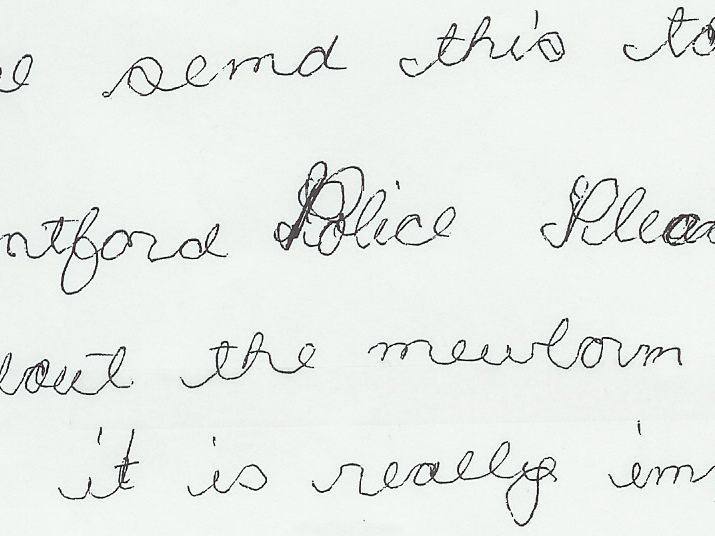 e send this to
ntford Police Pleas
bout the newborn
it is really im